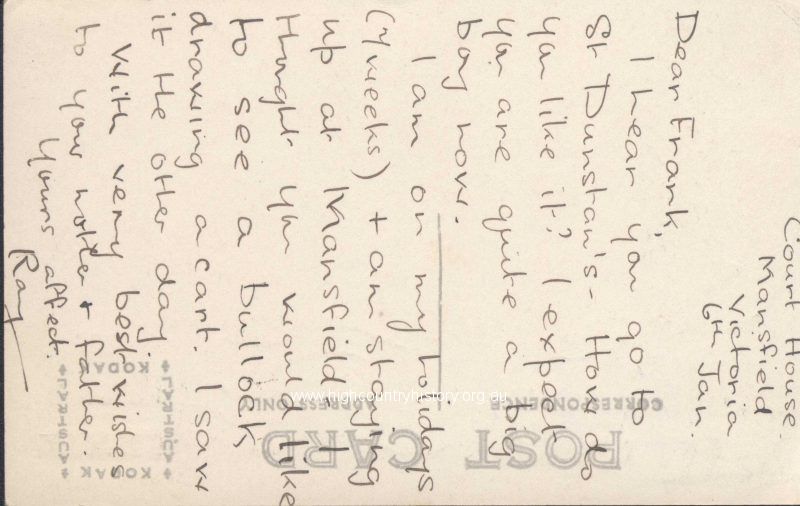 Court House.
Mansfield
Victoria
6th Jan.
Dear Frank,
I hear you go to
St Dunstan's - How do
you like it? I expect
you are quite a big
boy now.
I am on my holidays
(7 weeks) + am staying
up at Mansfield. I
thought you would like
to see a bullock
drawing a cart. I saw
it the other day.
With very best wishes
to your mother + father.
Yours affect.
Ray
POST CARD
CORRESPONDENCE
ADDRESS ONLY
KODAK
AUSTRAL
KODAK
AUSTRAL
www.highcountryhistory.org.au